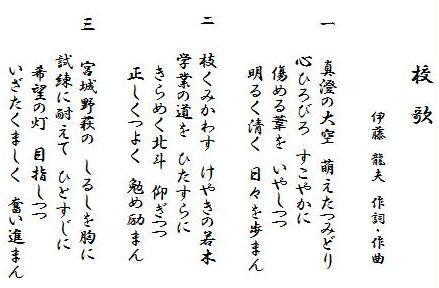 校歌
伊藤 龍夫 作詞・作曲
一 真澄の大空 萌えたつみどり
心ひろびろ すこやかに
傷める葦を いやしつつ
明るく清く 日々を歩まん
二 枝くみかわす けやきの若木
学業の道を ひたすらに
きらめく北斗 仰ぎつつ
正しくつよく 勉め励まん
三 宮城野萩の しるしを胸に
試練に耐えて ひとすじに
希望の灯 目指しつつ
いざたくましく 奮い進まん